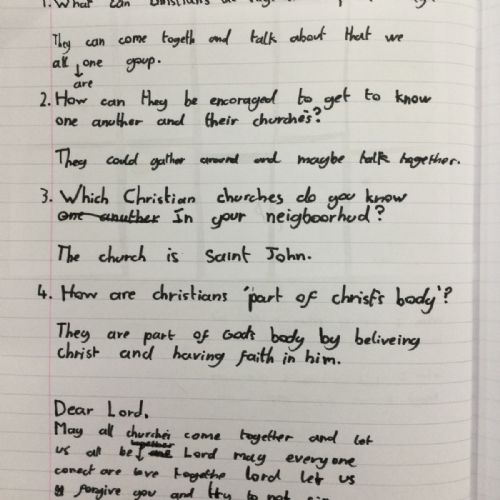 1. What can
They can come togeth and talk about that we
all one goup.
are
2. How can they be encoraged to get to know
one another and their churches?
They could gather around and maybe talk together.
3. Which Christian churches do you know
one another In your neigboorhud?
The church is Saint John.
4. How are christians 'part of christ's body'?
They are part of God's body by beliveing
christ and having faith in him.
Dear Lord,
May all churches come together and let
together
us all be Lord may everyone
conect are love togethe lord let us
forgive you and try to not